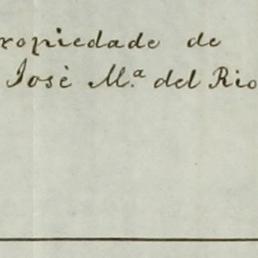 ropiedade de
José M.ª del Rio